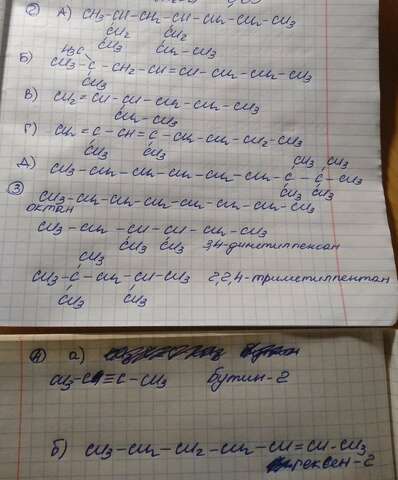 ② А) CH3-CH-CH2-CH-CH2-CH2-CH3
CH2 CH2
CH3 CH2-CH3
Б) H3C
CH3-C-CH2-CH=CH-CH2-CH2-CH2-CH3
CH3
В) CH2=CH-CH-CH2-CH2-CH2-CH3
CH2-CH3
Г) CH2=C-CH=C-CH2-CH2-CH2-CH3
CH3 CH3
CH3 CH3
Д) CH3-CH2-CH2-CH2-CH2-CH2-CH2-C-C-CH3
CH3 CH3
③
CH3-CH2-CH2-CH2-CH2-CH2-CH2-CH3
октан
CH3-CH2-CH-CH-CH2-CH3
CH3 CH3 3,4-диметилгексан
CH3
CH3-C-CH2-CH-CH3 2,2,4-триметилпентан
CH3 CH3
④ а)
CH3-C≡C-CH3 бутин-2
б) CH3-CH2-CH2-CH2-CH=CH-CH3
гексен-2